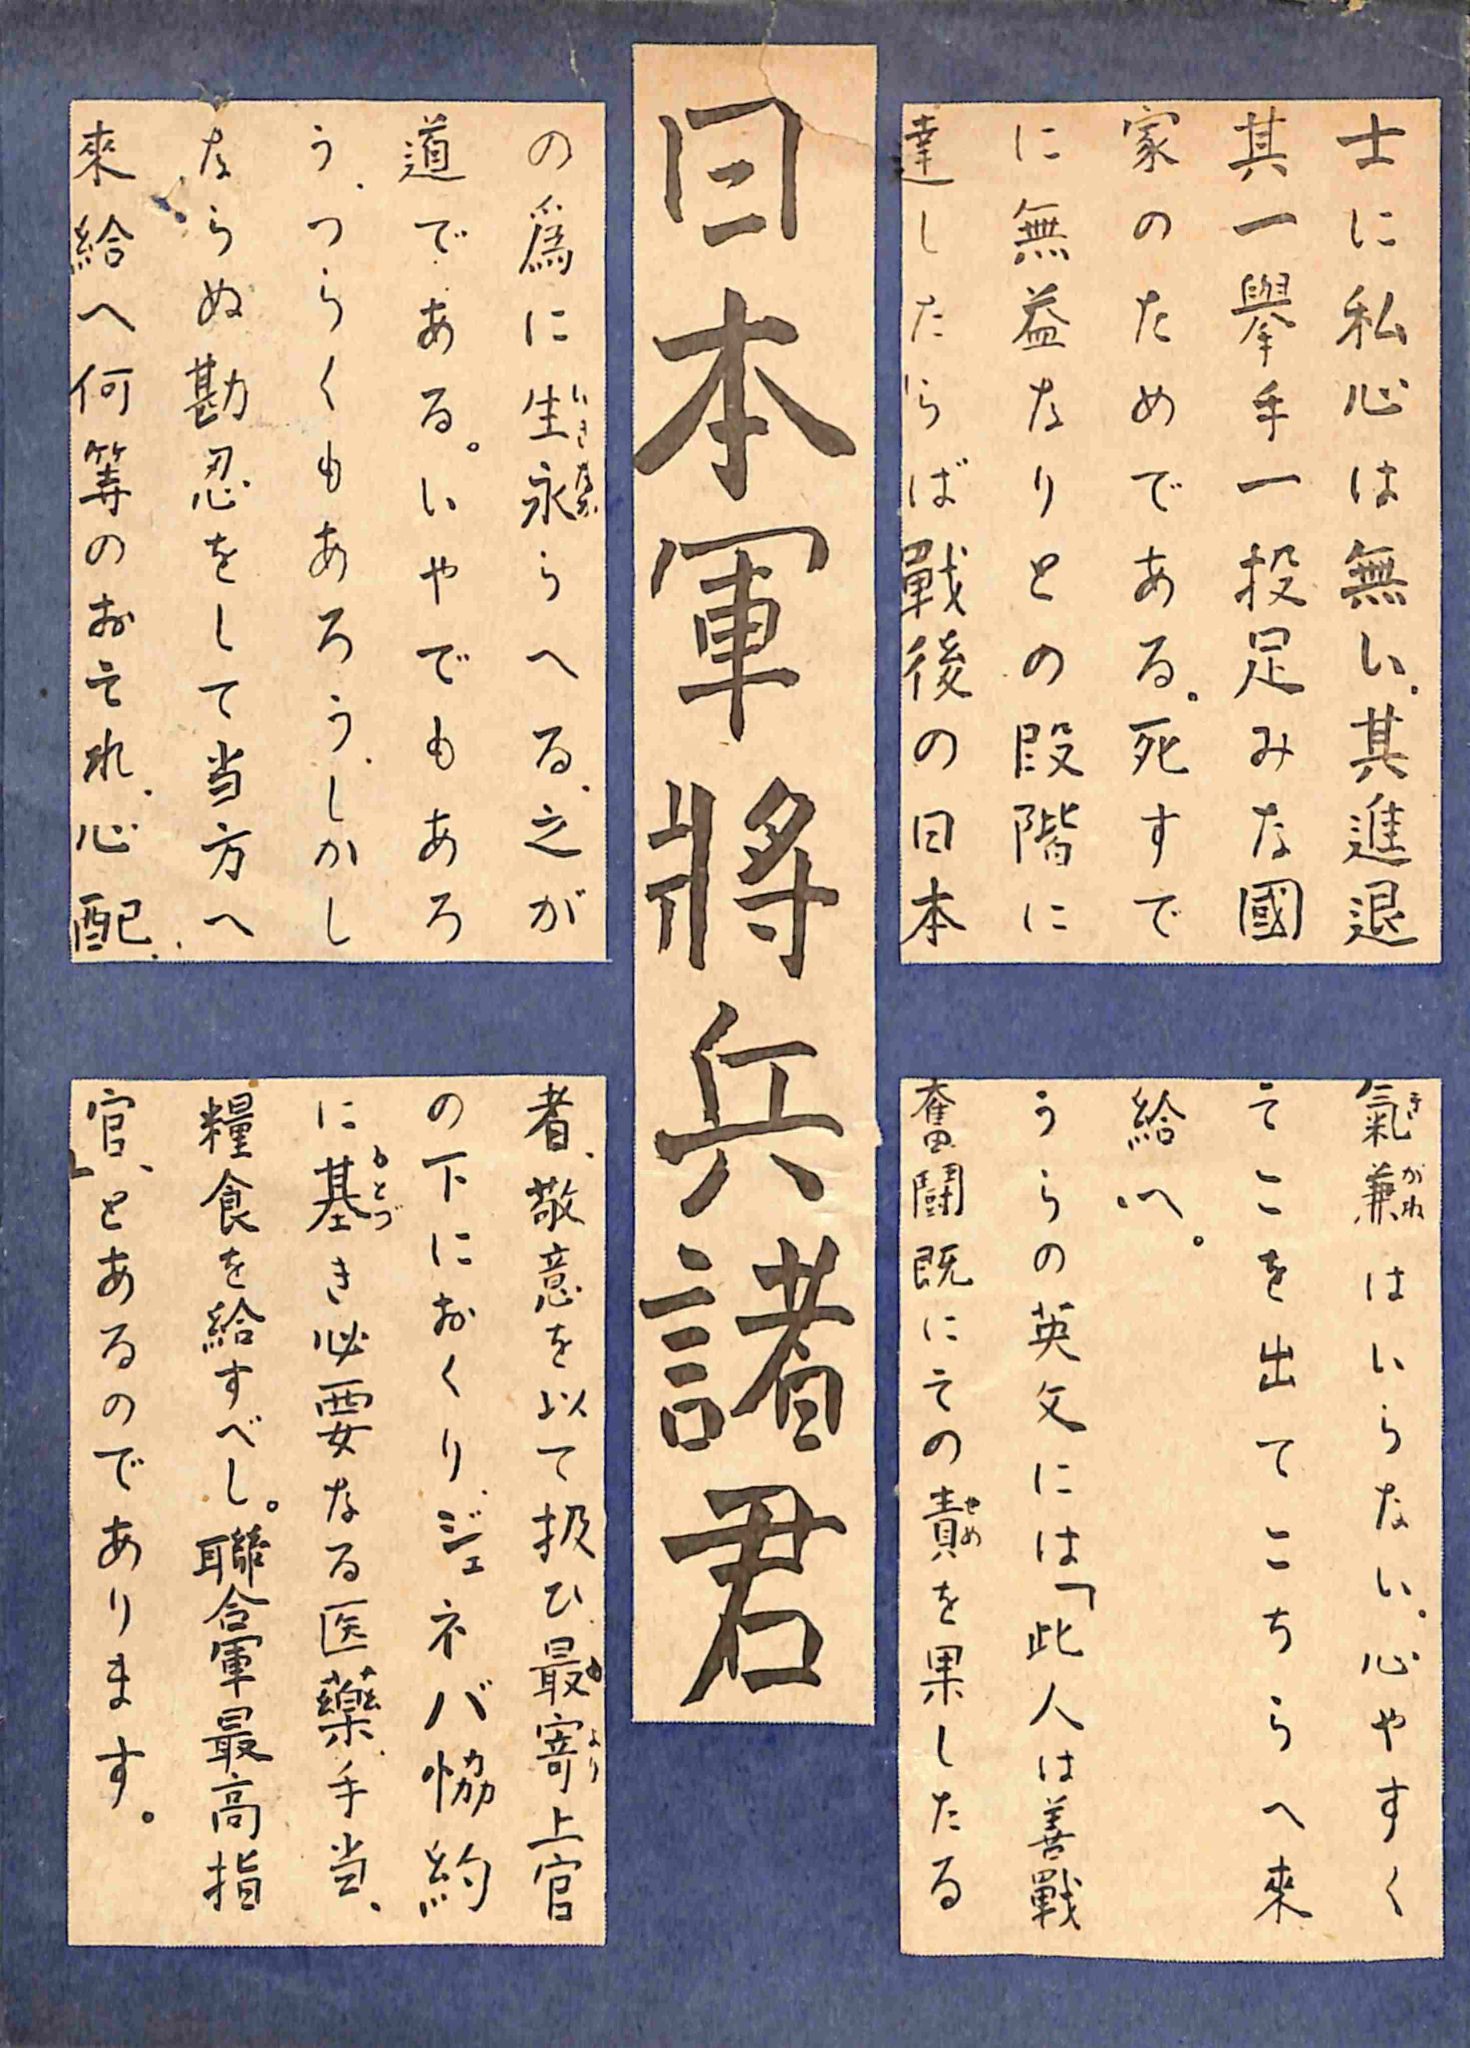 日本軍將兵諸君
士に私心は無い、其進退
其一擧手一投足みな國
家のためである。死すで
に無益なりとの段階に
達したらば戰後の日本
の爲に生永らへる、之が
道である。いやでもあろ
う、つらくもあろう、しかし
ならぬ勘忍をして当方へ
來給へ何等のおそれ、心配、
氣兼はいらない。心やすく
そこを出てこちらへ來
給へ。
うらの英文には「此人は善戰
奮鬪既にその責を果したる
者、敬意を以て扱ひ最寄上官
の下におくり、ジェネバ恊約
に基き必要なる医藥、手当、
糧食を給すべし。聯合軍最高指
官」とあるのであります。